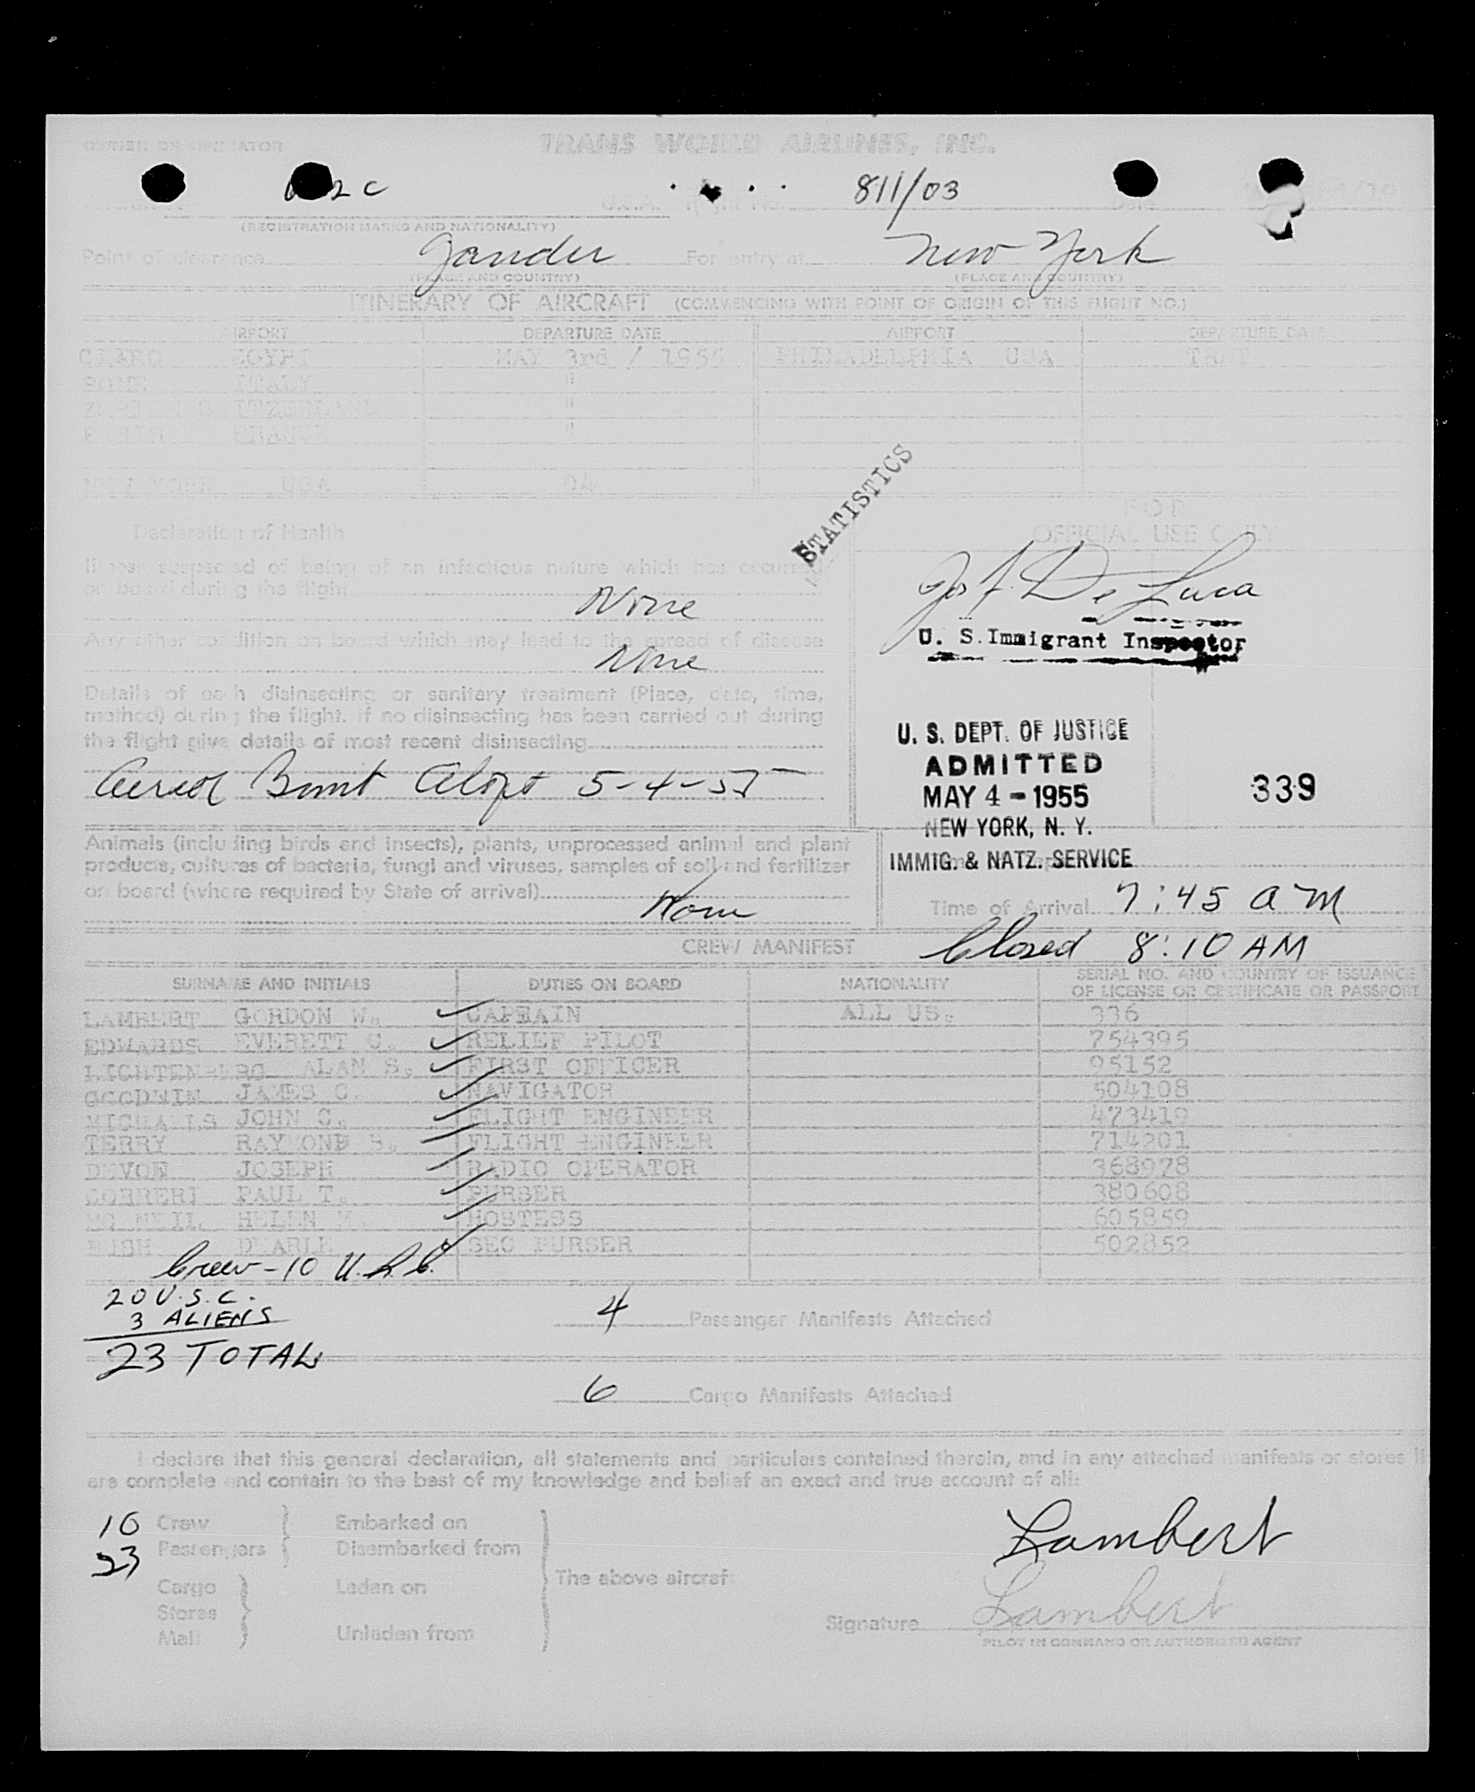 OWNER OR OPERATOR TRANS WORLD AIRLINES, INC.
2 C U.S.A. Flight No. 811/03 Date
(REGISTRATION MARKS AND NATIONALITY)
Point of clearance Gander For entry at New York
(PLACE AND COUNTRY) (PLACE AND COUNTRY)
ITINERARY OF AIRCRAFT (COMMENCING WITH POINT OF ORIGIN OF THIS FLIGHT NO.)
AIRPORT DEPARTURE DATE AIRPORT DEPARTURE DATE
EGYPT MAY 3rd / 1955 PHILADELPHIA USA
ROME ITALY "
ZURICH SWITZERLAND "
PARIS FRANCE "
NEW YORK USA 04
STATISTICS
FOR
OFFICIAL USE ONLY
Declaration of Health
Illness suspected of being of an infectious nature which has occurred
on board during the flight
None
Any other condition on board which may lead to the spread of disease
None
Jos. F. De Luca
U. S. Immigrant Inspector
Details of each disinsecting or sanitary treatment (Place, date, time,
method) during the flight. If no disinsecting has been carried out during
the flight give details of most recent disinsecting
Aerosol Bomb 5-4-55
U. S. DEPT. OF JUSTICE
ADMITTED
MAY 4 - 1955
NEW YORK, N. Y.
IMMIG. & NATZ. SERVICE
339
Animals (including birds and insects), plants, unprocessed animal and plant
products, cultures of bacteria, fungi and viruses, samples of soil and fertilizer
on board (where required by State of arrival)
None
Time of Arrival 7:45 A M
Closed 8:10 AM
CREW MANIFEST
SURNAME AND INITIALS DUTIES ON BOARD NATIONALITY SERIAL NO. AND COUNTRY OF ISSUANCE
OF LICENSE OR CERTIFICATE OR PASSPORT
LAMBERT GORDON W. CAPTAIN ALL US. 336
EDWARDS EVERETT C. RELIEF PILOT 754395
LICHTENBERG ALAN S. FIRST OFFICER 95152
GOODWIN JAMES C. NAVIGATOR 504108
MICHAELS JOHN C. FLIGHT ENGINEER 473419
TERRY RAYMOND B. FLIGHT ENGINEER 714201
DEVON JOSEPH RADIO OPERATOR 368928
CORRERI PAUL T. PURSER 380608
MC NEIL HELEN M. HOSTESS 605859
DEARLE SEC PURSER 502852
Crew - 10 U.S.C.
20 U.S.C.
3 ALIENS
23 TOTAL
4 Passenger Manifests Attached
6 Cargo Manifests Attached
I declare that this general declaration, all statements and particulars contained therein, and in any attached manifests or stores
are complete and contain to the best of my knowledge and belief an exact and true account of all:
10 Crew Embarked on
23 Passengers Disembarked from
Cargo Laden on The above aircraft
Stores
Mail Unladen from
Lambert
Signature Lambert
PILOT IN COMMAND OR AUTHORIZED AGENT